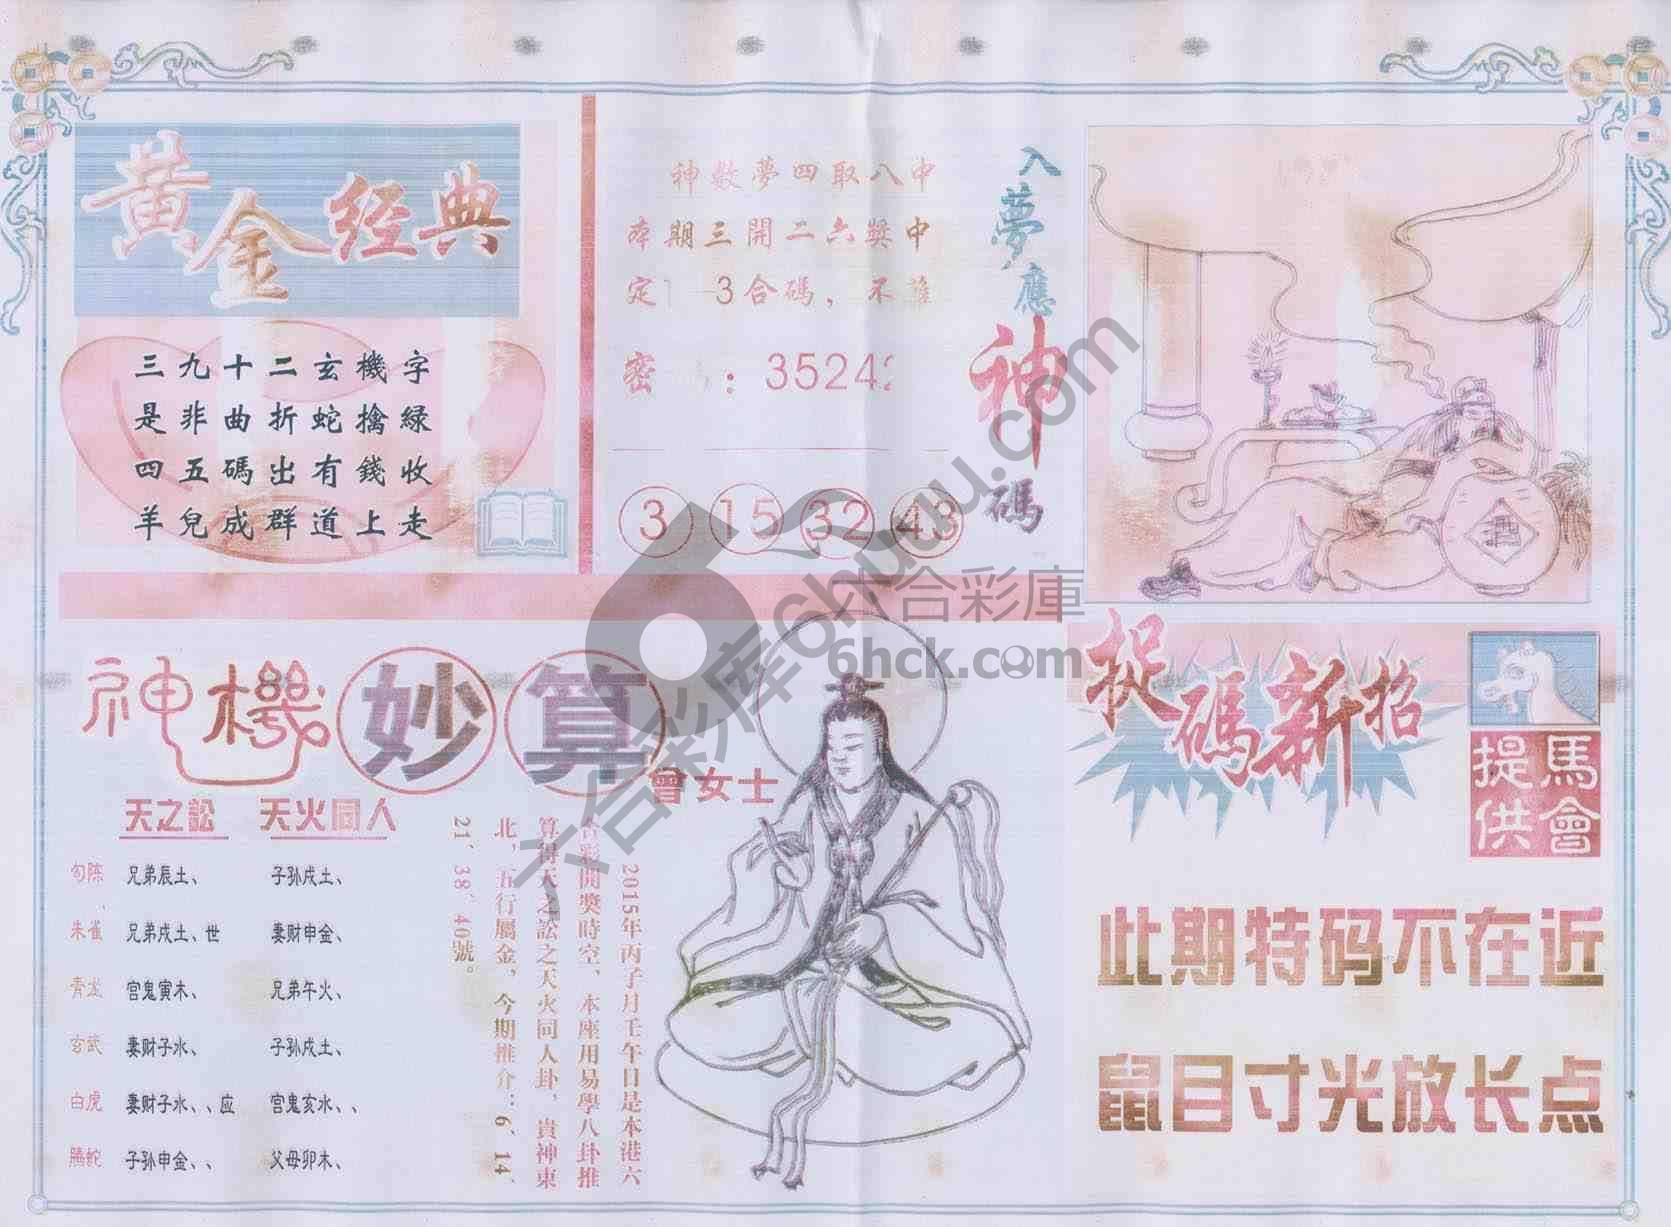 黄金经典
三九十二玄機字
是非曲折蛇擒緑
四五碼出有錢收
羊兒成群道上走
神數夢四取八中
本期三開二六獎中
定 3合碼，不
密 ：35242
3 15 32 43
入夢應神碼
神機妙算
曾女士
天之訟 天火同人
勾陈 兄弟辰土、 子孙戌土、
朱雀 兄弟戌土、世 妻财申金、
青龙 官鬼寅木、 兄弟午火、
玄武 妻财子水、 子孙戌土、
白虎 妻财子水、、应 官鬼亥水、、
腾蛇 子孙申金、、 父母卯木、
2015年丙子月壬午日是本港六
合彩開獎時空、本座用易學八卦推
算得天之訟之天火同人卦，貴神東
北，五行屬金，今期推介：6、14、
21、38、40號。
捉碼新招
馬會提供
此期特码不在近
鼠目寸光放长点
六合彩库 6hchuwu.com
六合彩庫
6hck.com